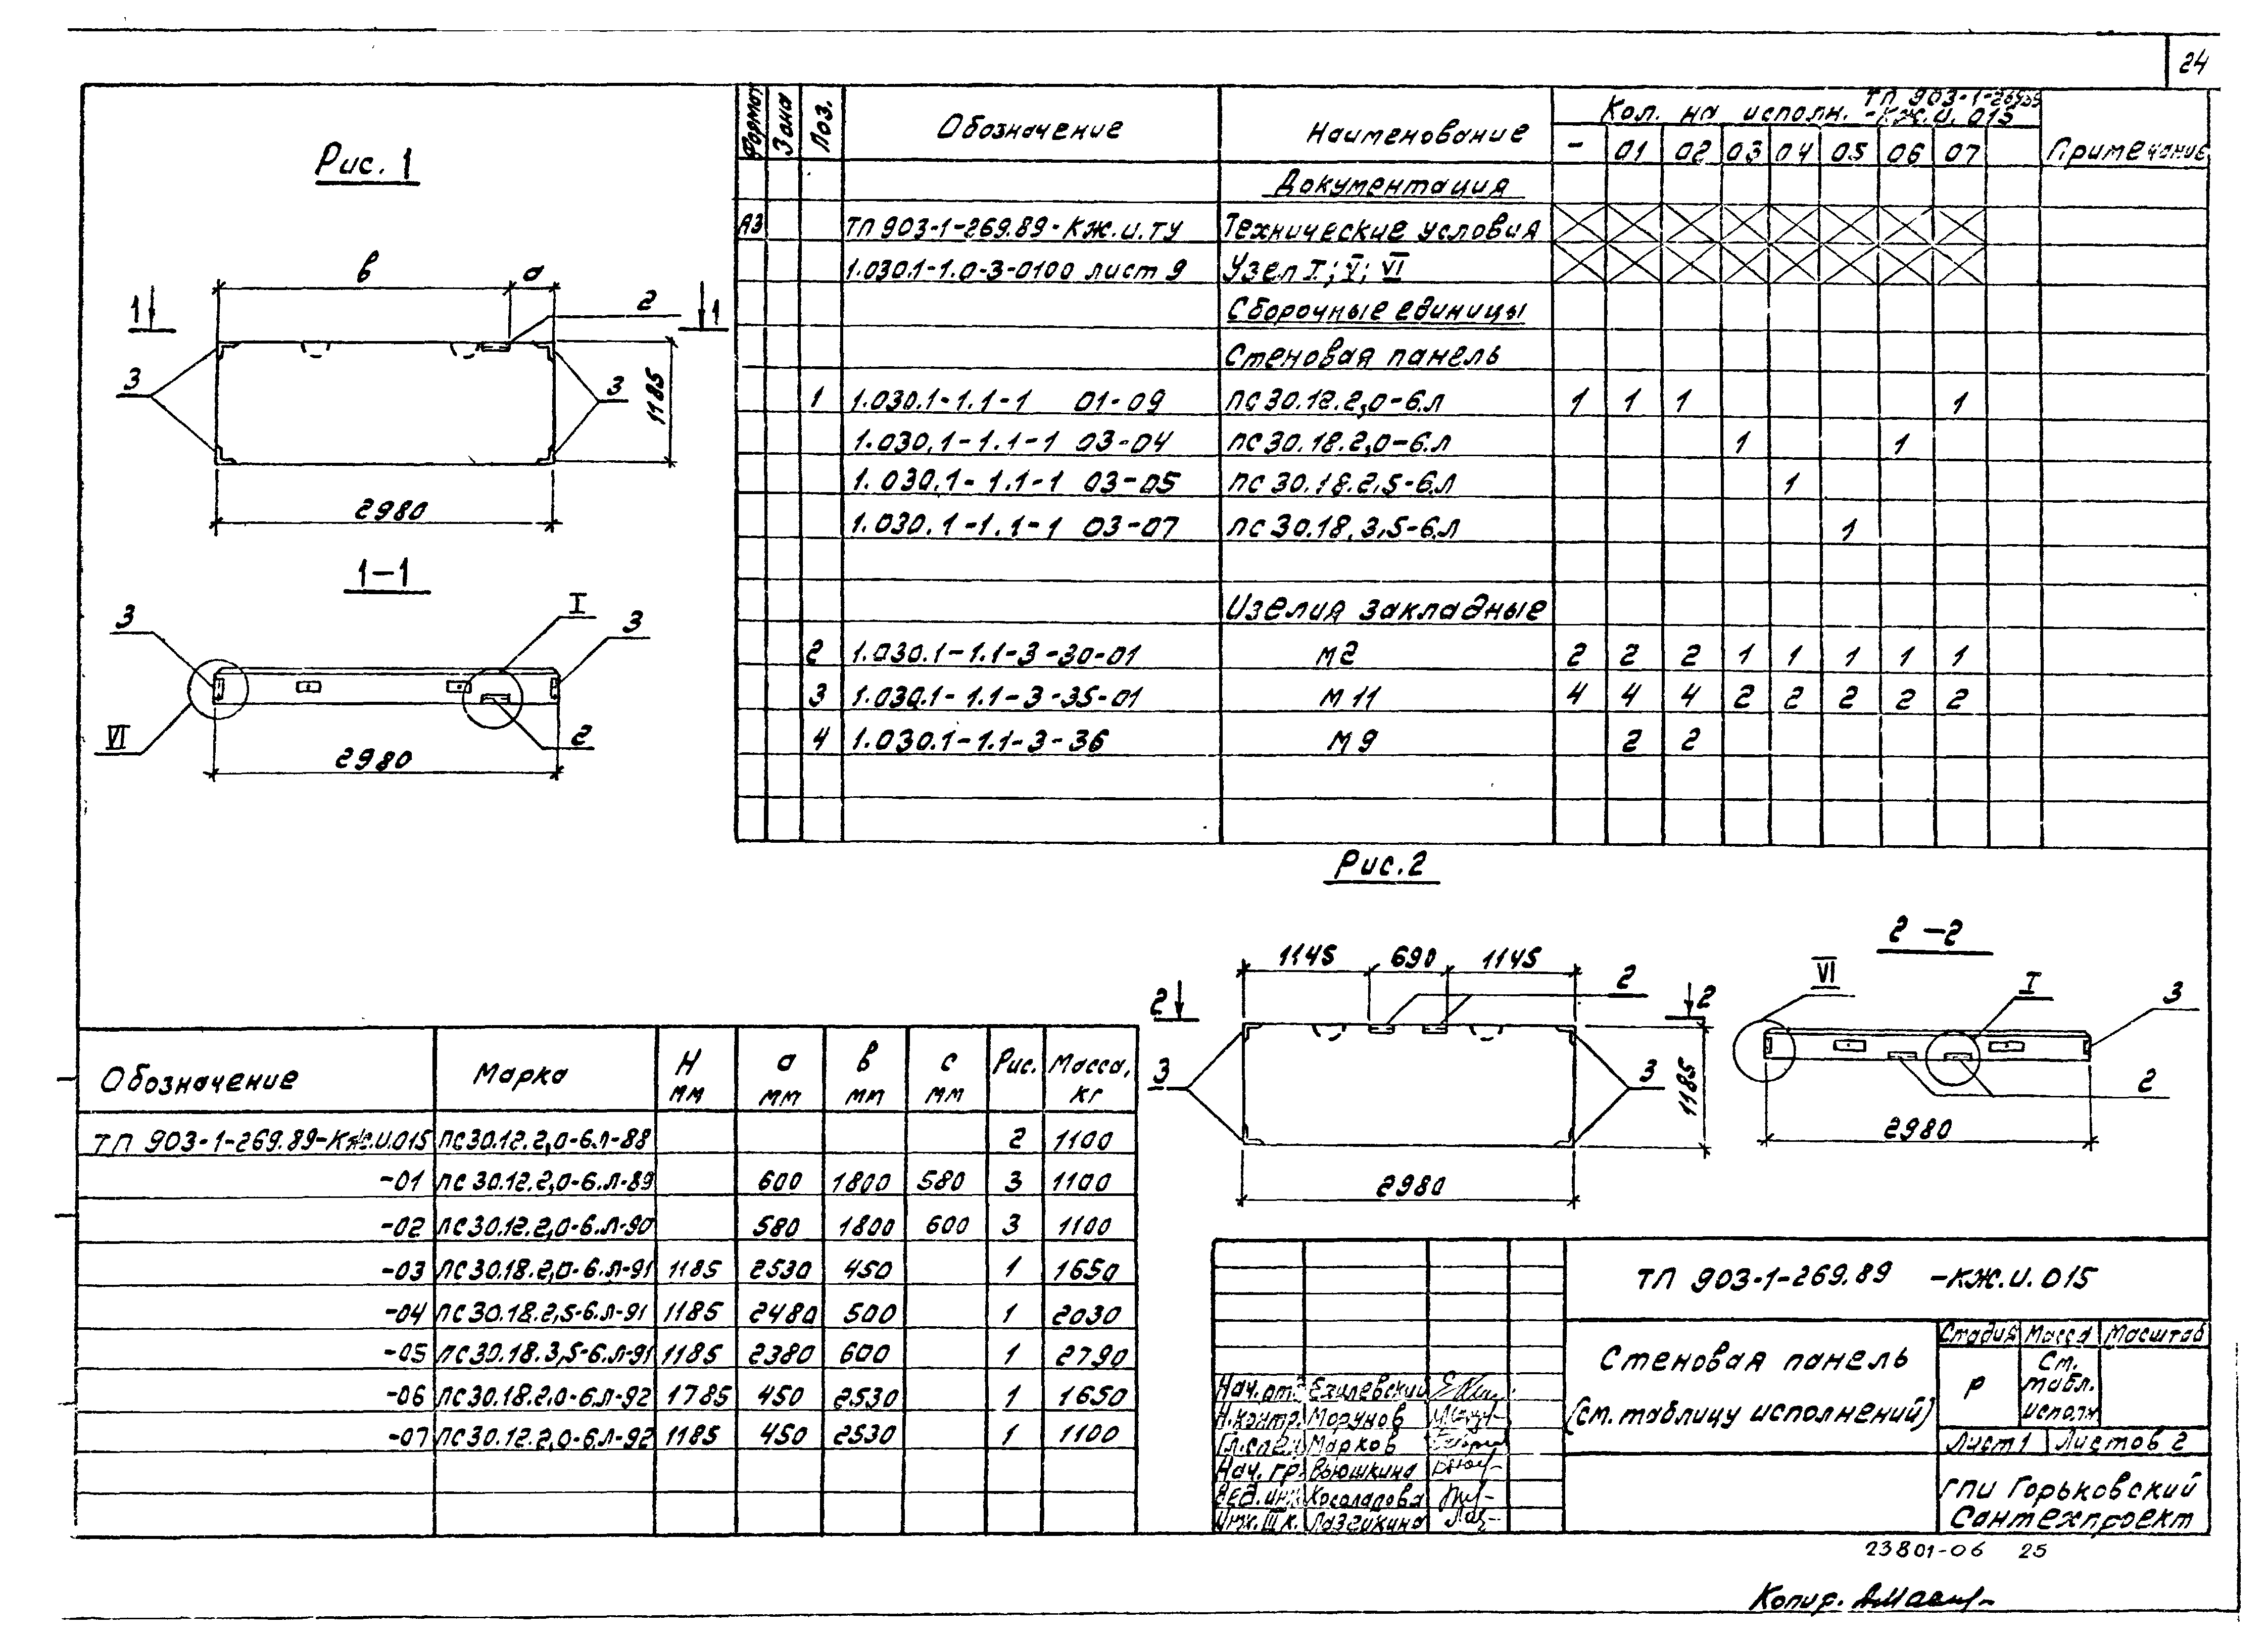 24
Рис. 1
в
а
1
1
2
3
3
1185
2980
1-1
3
I
3
VI
2
2980
Формат Зона Поз. Обозначение Наименование Кол. на исполн. ТП 903-1-269.89 -КЖ.И.015 Примечание
- 01 02 03 04 05 06 07
Документация
А3 ТП 903-1-269.89-КЖ.И.ТУ Технические условия
1.030.1-1.0-3-0100 лист 9 Узел I; V; VI
Сборочные единицы
Стеновая панель
1 1.030.1-1.1-1 01-09 ПС 30.12.2,0-6.Л 1 1 1 1
1.030.1-1.1-1 03-04 ПС 30.18.2,0-6.Л 1 1
1.030.1-1.1-1 03-05 ПС 30.18.2,5-6.Л 1
1.030.1-1.1-1 03-07 ПС 30.18.3,5-6.Л 1
Изелия закладные
2 1.030.1-1.1-3-30-01 М2 2 2 2 1 1 1 1 1
3 1.030.1-1.1-3-35-01 М11 4 4 4 2 2 2 2 2
4 1.030.1-1.1-3-36 М9 2 2
Рис. 2
1145 690 1145
2
2
2
3
3
1185
2980
2-2
VI
I
3
2
2980
Обозначение Марка Н мм а мм в мм с мм Рис. Масса, кг
ТП 903-1-269.89-КЖ.И.015 ПС 30.12.2,0-6.Л-88 2 1100
-01 ПС 30.12.2,0-6.Л-89 600 1800 580 3 1100
-02 ПС 30.12.2,0-6.Л-90 580 1800 600 3 1100
-03 ПС 30.18.2,0-6.Л-91 1185 2530 450 1 1650
-04 ПС 30.18.2,5-6.Л-91 1185 2480 500 1 2030
-05 ПС 30.18.3,5-6.Л-91 1185 2380 600 1 2790
-06 ПС 30.18.2,0-6.Л-92 1785 450 2530 1 1650
-07 ПС 30.12.2,0-6.Л-92 1185 450 2530 1 1100
ТП 903-1-269.89 -КЖ.И.015
Стеновая панель
(см. таблицу исполнений)
Стадия Масса Масштаб
Р См. табл. исполн
Лист 1 Листов 2
ГПИ Горьковский
Сантехпроект
Нач. отд. Езилевский
Н.контр. Морунов
Гл.спец. Марков
Нач. гр. Вьюшкина
Вед. инж. Косолапова
Инж. III к.
23801-06 25
Копир.